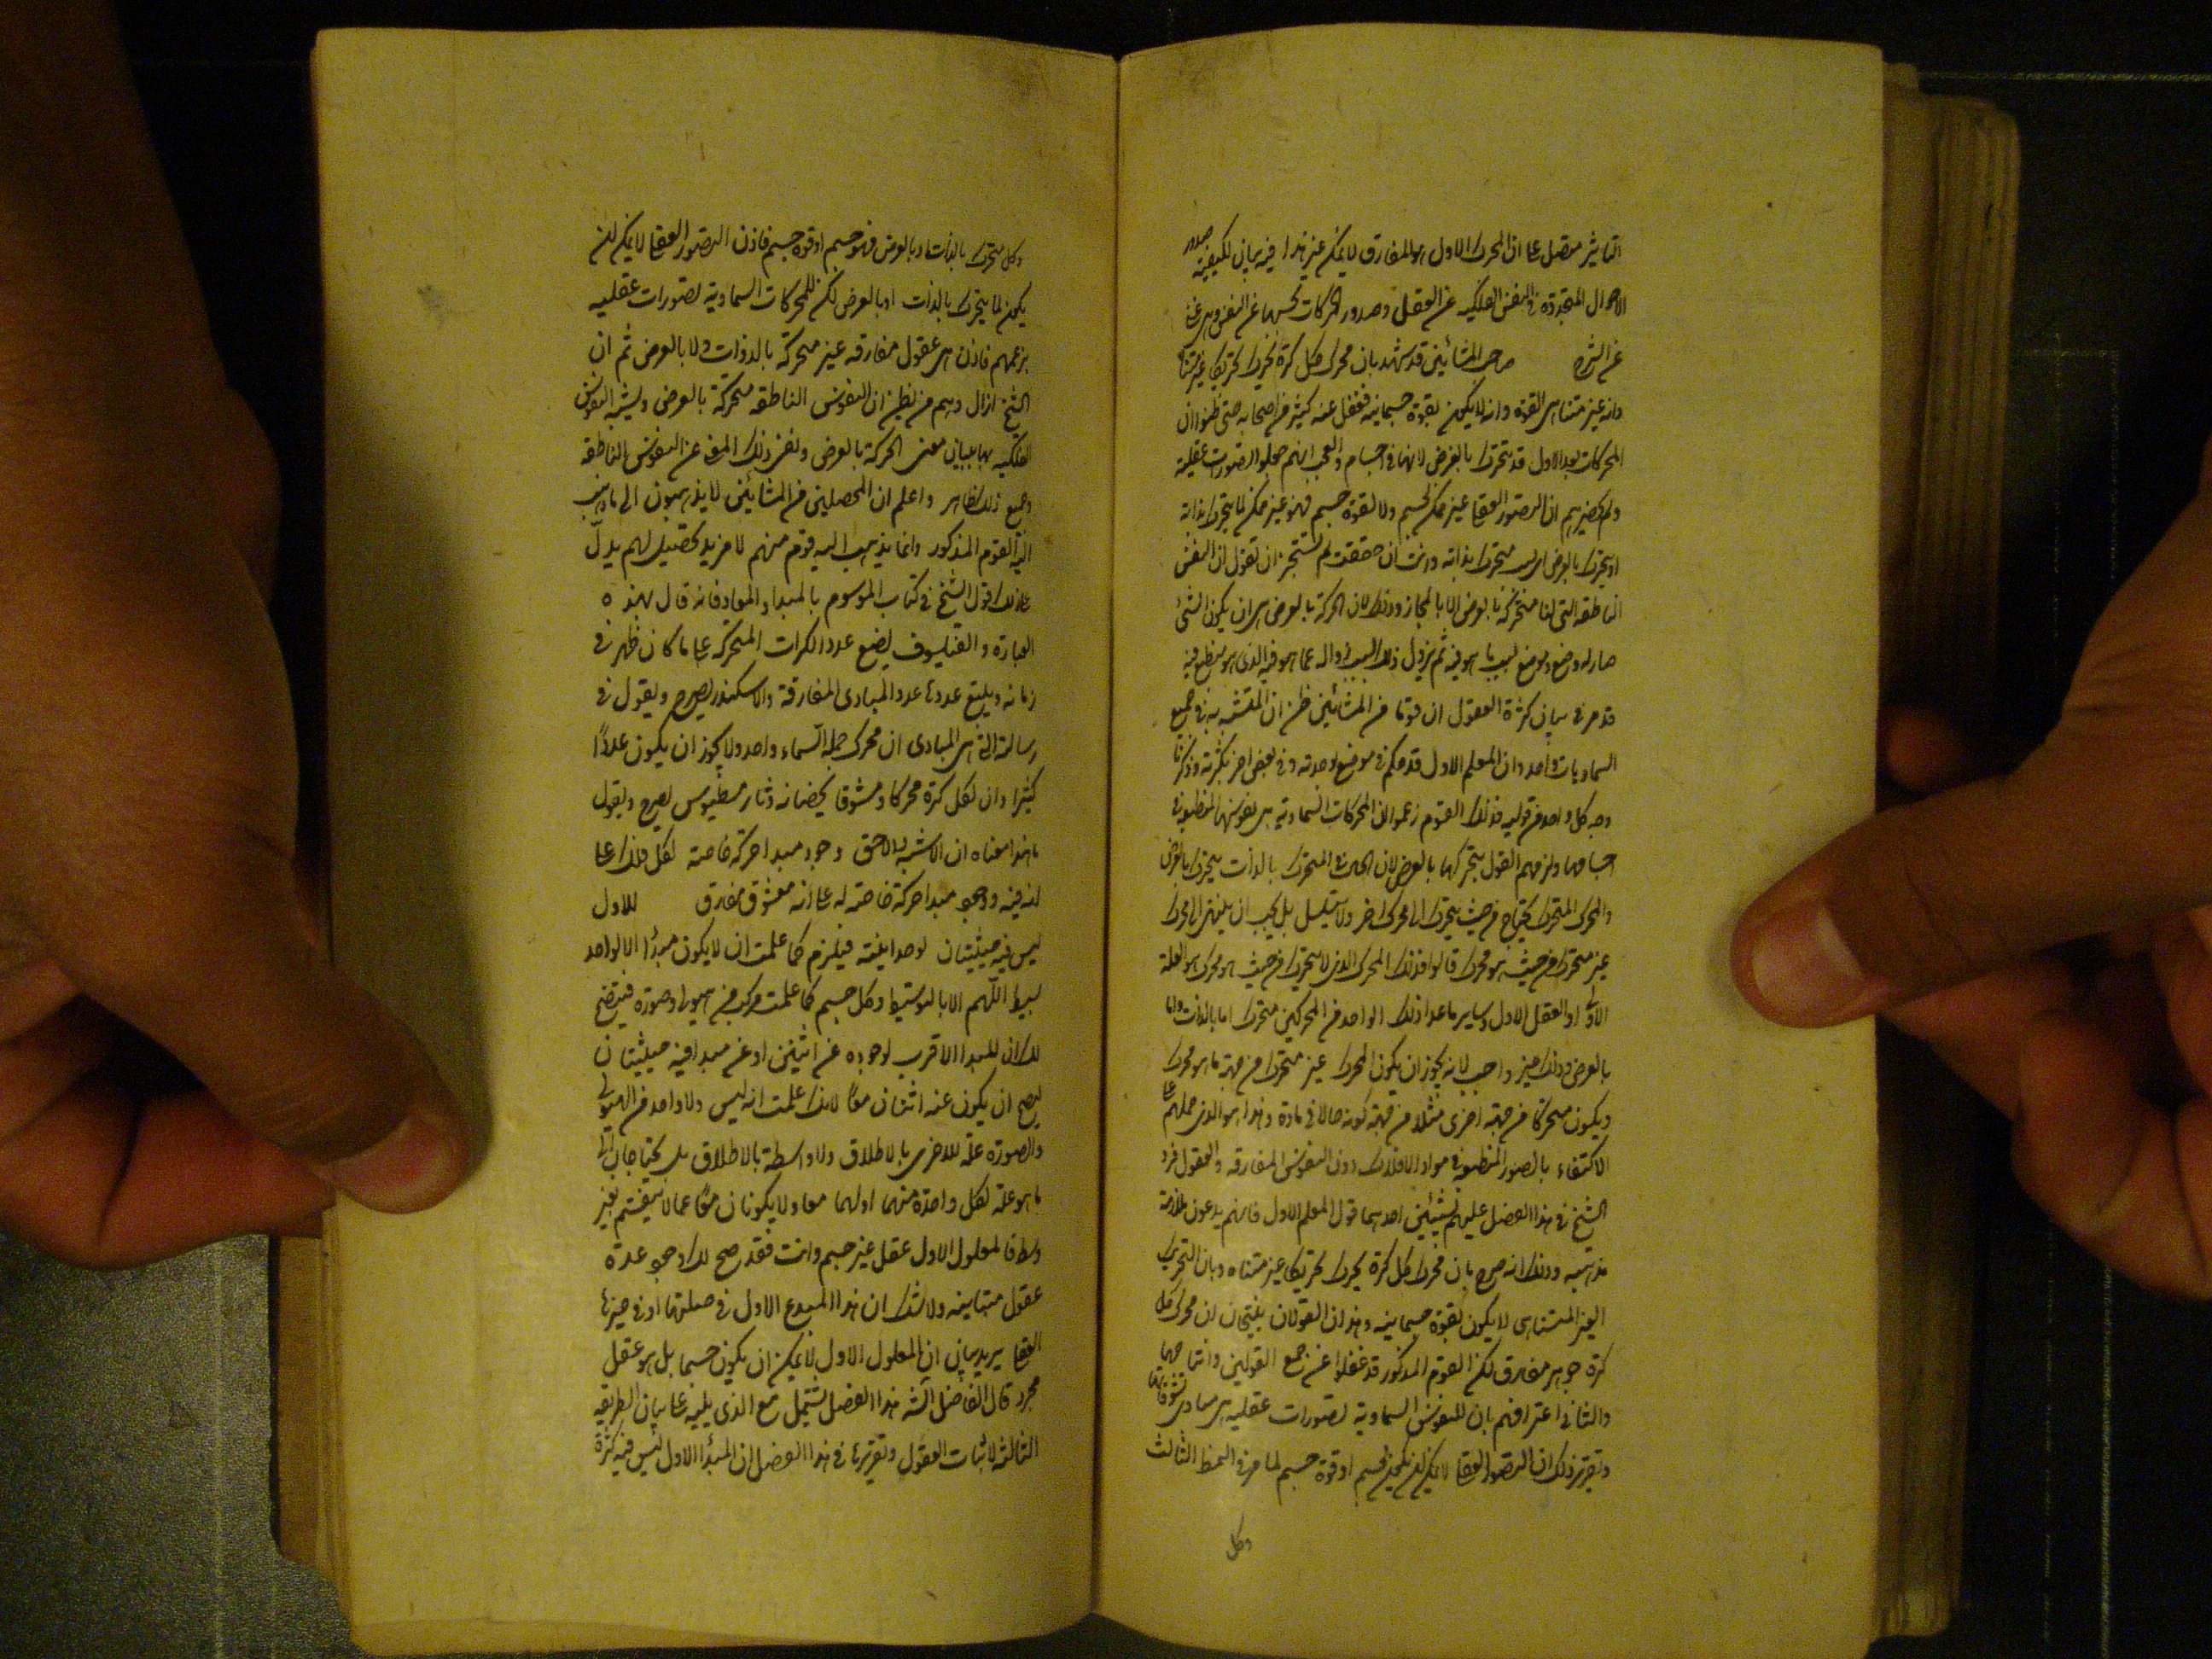 التاثير متصل على ان المحرك الاول هو المفارق لا يمكن غير هذا فيه بيان لكيفية صدور
الاحوال المتجددة فى النفس الفلكية عن العقل وصدور الحركات بحسبها عن النفس وهى غنى
عن الشرح صاحب المشائين قد شهد بان محرك كل كرة يحرك تحريكا غير متناه
وانه غير متناهى القوة وانه لا يكون لقوة جسمانية فغفل عنه كثير من اصحابه حتى ظنوا ان
المحركات بعد الاول قد تتحرك بالعرض لانها فى اجسام والعجب انهم جعلوا لها تصورات عقلية
ولم يحضرهم ان التصور العقلى غير ممكن لجسم ولا لقوة جسم فهو غير ممكن لما يتحرك بذاته
او يتحرك بالعرض اى بسبب متحرك بذاته وانت ان حققت لم تستجز ان تقول ان النفس
الناطقة التى لنا متحركة بالعرض الا بالمجاز وذلك لان الحركة بالعرض هى ان يكون الشئ
صار له وضع وموضع بسبب ما هو فيه ثم يزول ذلك بسبب زواله عما هو فيه الذى هو منطبع فيه
قد مر فى بيان كثرة العقول ان قوما من المشائين ظن ان المتشبه به فى جميع
السماويات واحد وان المعلم الاول قد حكم فى موضع بوحدته وفى بعض اخر بكثرته وذكرنا
وجه كل واحد من قوليه فذلك القوم زعموا ان المحركات السماوية هى نفوسها المنطبعة فى
اجسامها ولزمهم القول بتحركها بالعرض لان الحال فى المتحرك بالذات يتحرك بالعرض
والمحرك المتحرك يحتاج من حيث يتحرك الى محرك اخر ولا يتسلسل بل يجب ان ينتهى الى محرك
غير متحرك من حيث هو محرك قالوا فذلك المحرك الذى لا يتحرك من حيث هو محرك هو العلة
الاولى او العقل الاول وساير ما عدا ذلك الواحد من المحركين متحرك اما بالذات واما
بالعرض وذلك غير واجب لانه يجوز ان يكون المحرك غير متحرك من جهة ما هو محرك
ويكون متحركا من جهة اخرى مثلا من جهة كونه حالا فى مادة وهذا هو الذى حملهم على
الاكتفاء بالصور المنطبعة فى مواد الافلاك دون النفوس المفارقة والعقول فرد
الشيخ فى هذا الفصل عليهم بشيئين احدهما قول المعلم الاول فانهم يدعون ملازمة
مذهبه وذلك انه صرح بان محرك كل كرة يحرك تحريكا غير متناه وبان التحريك
الغير المتناهى لا يكون لقوة جسمانية وهذان القولان ينتجان ان محرك كل
كرة جوهر مفارق لكن القوم المذكور قد غفلوا عن جمع القولين وانتاجهما
والثانى اعترافهم بان للنفوس السماوية تصورات عقلية هى مبادى تشوقاتها
وتقرير ذلك ان التصور العقلى لا يمكن ان يكون لجسم او قوة جسم لما مر فى النمط الثالث
وكل
وكل متحرك بالذات او بالعرض فهو جسم او قوة جسم فاذن التصور العقلى لا يمكن ان
يكون لما يتحرك بالذات او بالعرض لكن للمحركات السماوية تصورات عقلية
بزعمهم فاذن هى عقول مفارقة غير متحركة بالذات ولا بالعرض ثم ان
الشيخ ازال وهم من يظن ان النفوس الناطقة متحركة بالعرض ويشبه النفوس
الفلكية بها ببيان معنى الحركة بالعرض ونفى ذلك المعنى عن النفوس الناطقة
وجميع ذلك ظاهر واعلم ان المحصلين من المشائين لا يذهبون الى ما ذهب
اليه القوم المذكور وانما يذهب اليه قوم منهم لا مزيد تحصيل لهم يدل
على ذلك قول الشيخ فى كتابه الموسوم بالمبدا والمعاد فانه قال بهذه
العبارة والفيلسوف يضع عدد الكرات المتحركة على ما كان ظهر فى
زمانه ويتبع عددها عدد المبادى المفارقة والاسكندر يصرح ويقول فى
رسالته التى هى المبادى ان محرك جملة السماء واحد ولا يجوز ان يكون عددا
كثيرا وان لكل كرة محركا ومشوقا يخصانه وثامسطيوس يصرح ويقول
ما هذا معناه ان الاشبه والاحق وجود مبدا حركة خاصة لكل فلك على
انه فيه ووجود مبدا حركة خاصة له على انه معشوق مفارق للاول
ليس فيه حيثيتان لوحدانيته فيلزم كما علمت ان لا يكون مبدأ الا لواحد
بسيط اللهم الا بالتوسط وكل جسم كما علمت مركب من هيولى وصورة فيتضح
لك ان المبدا الاقرب لوجوده عن اثنين او عن مبدا فيه حيثيتان
ليصح ان يكون عنه اثنان معا لانك علمت انه ليس ولا واحد من الهيولى
والصورة علة للاخرى بالاطلاق ولا واسطة بالاطلاق بل يحتاجان الى
ما هو علة لكل واحدة منهما او لهما معا ولا يكونان معا عما لا ينقسم بغير
وسط فالمعلول الاول عقل غير جسم وانت فقد صح لك وجود عدة
عقول متباينة ولا شك ان هذا المبدع الاول فى سلسلتها او فى حيزها
العقلى يريد بيان ان المعلول الاول لا يمكن ان يكون جسما بل هو عقل
مجرد قال الفاضل الشارح هذا الفصل يشتمل مع الذى يليه على بيان الطريقة
الثالثة لاثبات العقول وتقريرها فى هذا الفصل ان المبدأ الاول ليس فيه كثرة